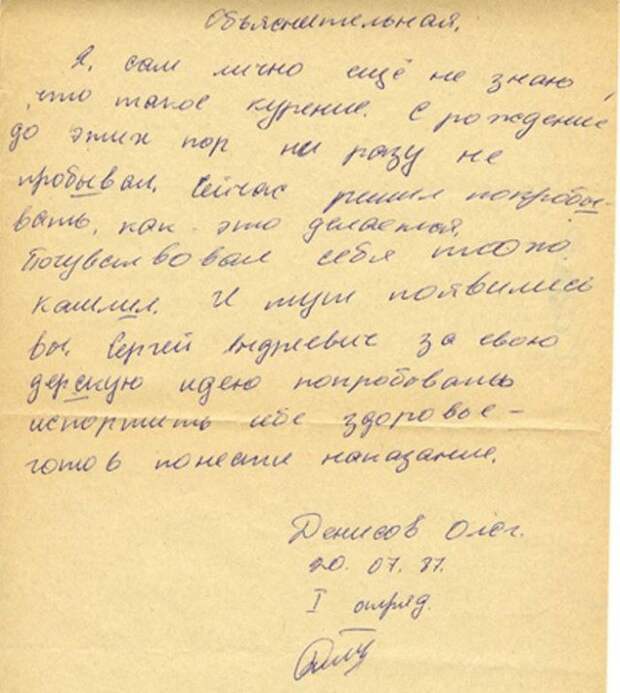 Объяснительная.
Я, сам лично ещё не знаю,
что такое курение. С рождение
до этих пор ни разу не
пробывал. Сейчас решил попробы-
вать, как это делается.
Почувствовал себя плохо
кашлил. И тут появились
вы. Сергей Андреевич за свою
дерскую идею попробовать
испортить себе здоровье -
готов понести наказание.
Денисов Олег.
20. 07. 87.
I отряд.